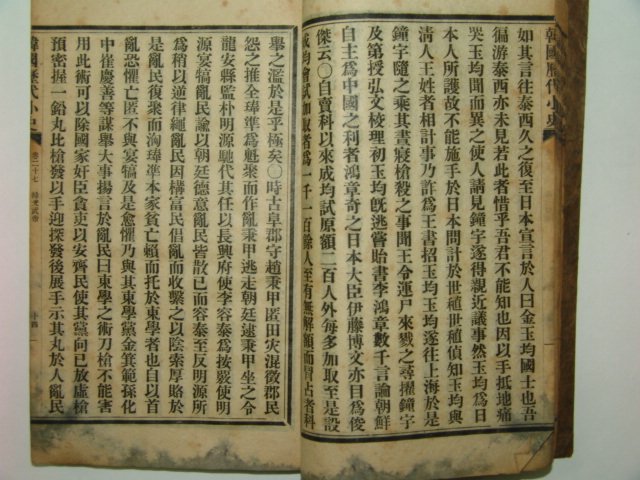 韓國歷代小史
如其言往泰西久之復至日本宣言於人曰金玉均國士也吾
徧游泰西亦未見若此者惜乎吾君不能知也因以手抵地痛
哭玉均聞而異之使人請見鐘宇遂得親近議事然玉均爲日
本人所護故不能施於日本問計於世稙世稙偵知玉均與
淸人王姓者相計事乃許爲王書招玉均玉均遂往上海於是
鐘宇隨之乘其晝寢槍殺之事聞王令運尸來戮之尋擢鐘宇
及第授弘文校理初玉均旣逃嘗貽書李鴻章數千言論朝鮮
自主爲中國之利者鴻章奇之日本大臣伊藤博文亦目爲俊
傑云〇自賣科以來成均試原額二百人外每多加取至是設
成均會試加取者爲一千一百餘人至有無解額而冒占者科
擧之濫於是乎極矣〇時古阜郡守趙秉甲匿田灾混徵郡民
怨之推全琫準爲魁聚而作亂秉甲逃走朝廷逮秉甲坐之令
龍安縣監朴明源馳代其任以長興府使李容泰爲按覈使明
源宴犒亂民諭以朝廷德意亂民皆散已而容泰至反明源所
爲稍以逆律繩亂民因構富民倡亂而收繫之以陰索厚賂於
是亂民復聚而洶琫準本家貧亡賴而托於東學者也自以首
亂恐懼亡匿不與宴犒及是愈懼乃與其東學黨金箕範孫化
中崔慶善等謀擧大事揚言於亂民曰東學之術刀槍不能害
用此術可以除國家奸臣貪吏以安齊民使其黨向已放虛槍
預密握一鉛丸比槍發以手迎探發後展手示其丸於人亂民
韓國歷代小史
卷二十七
十四